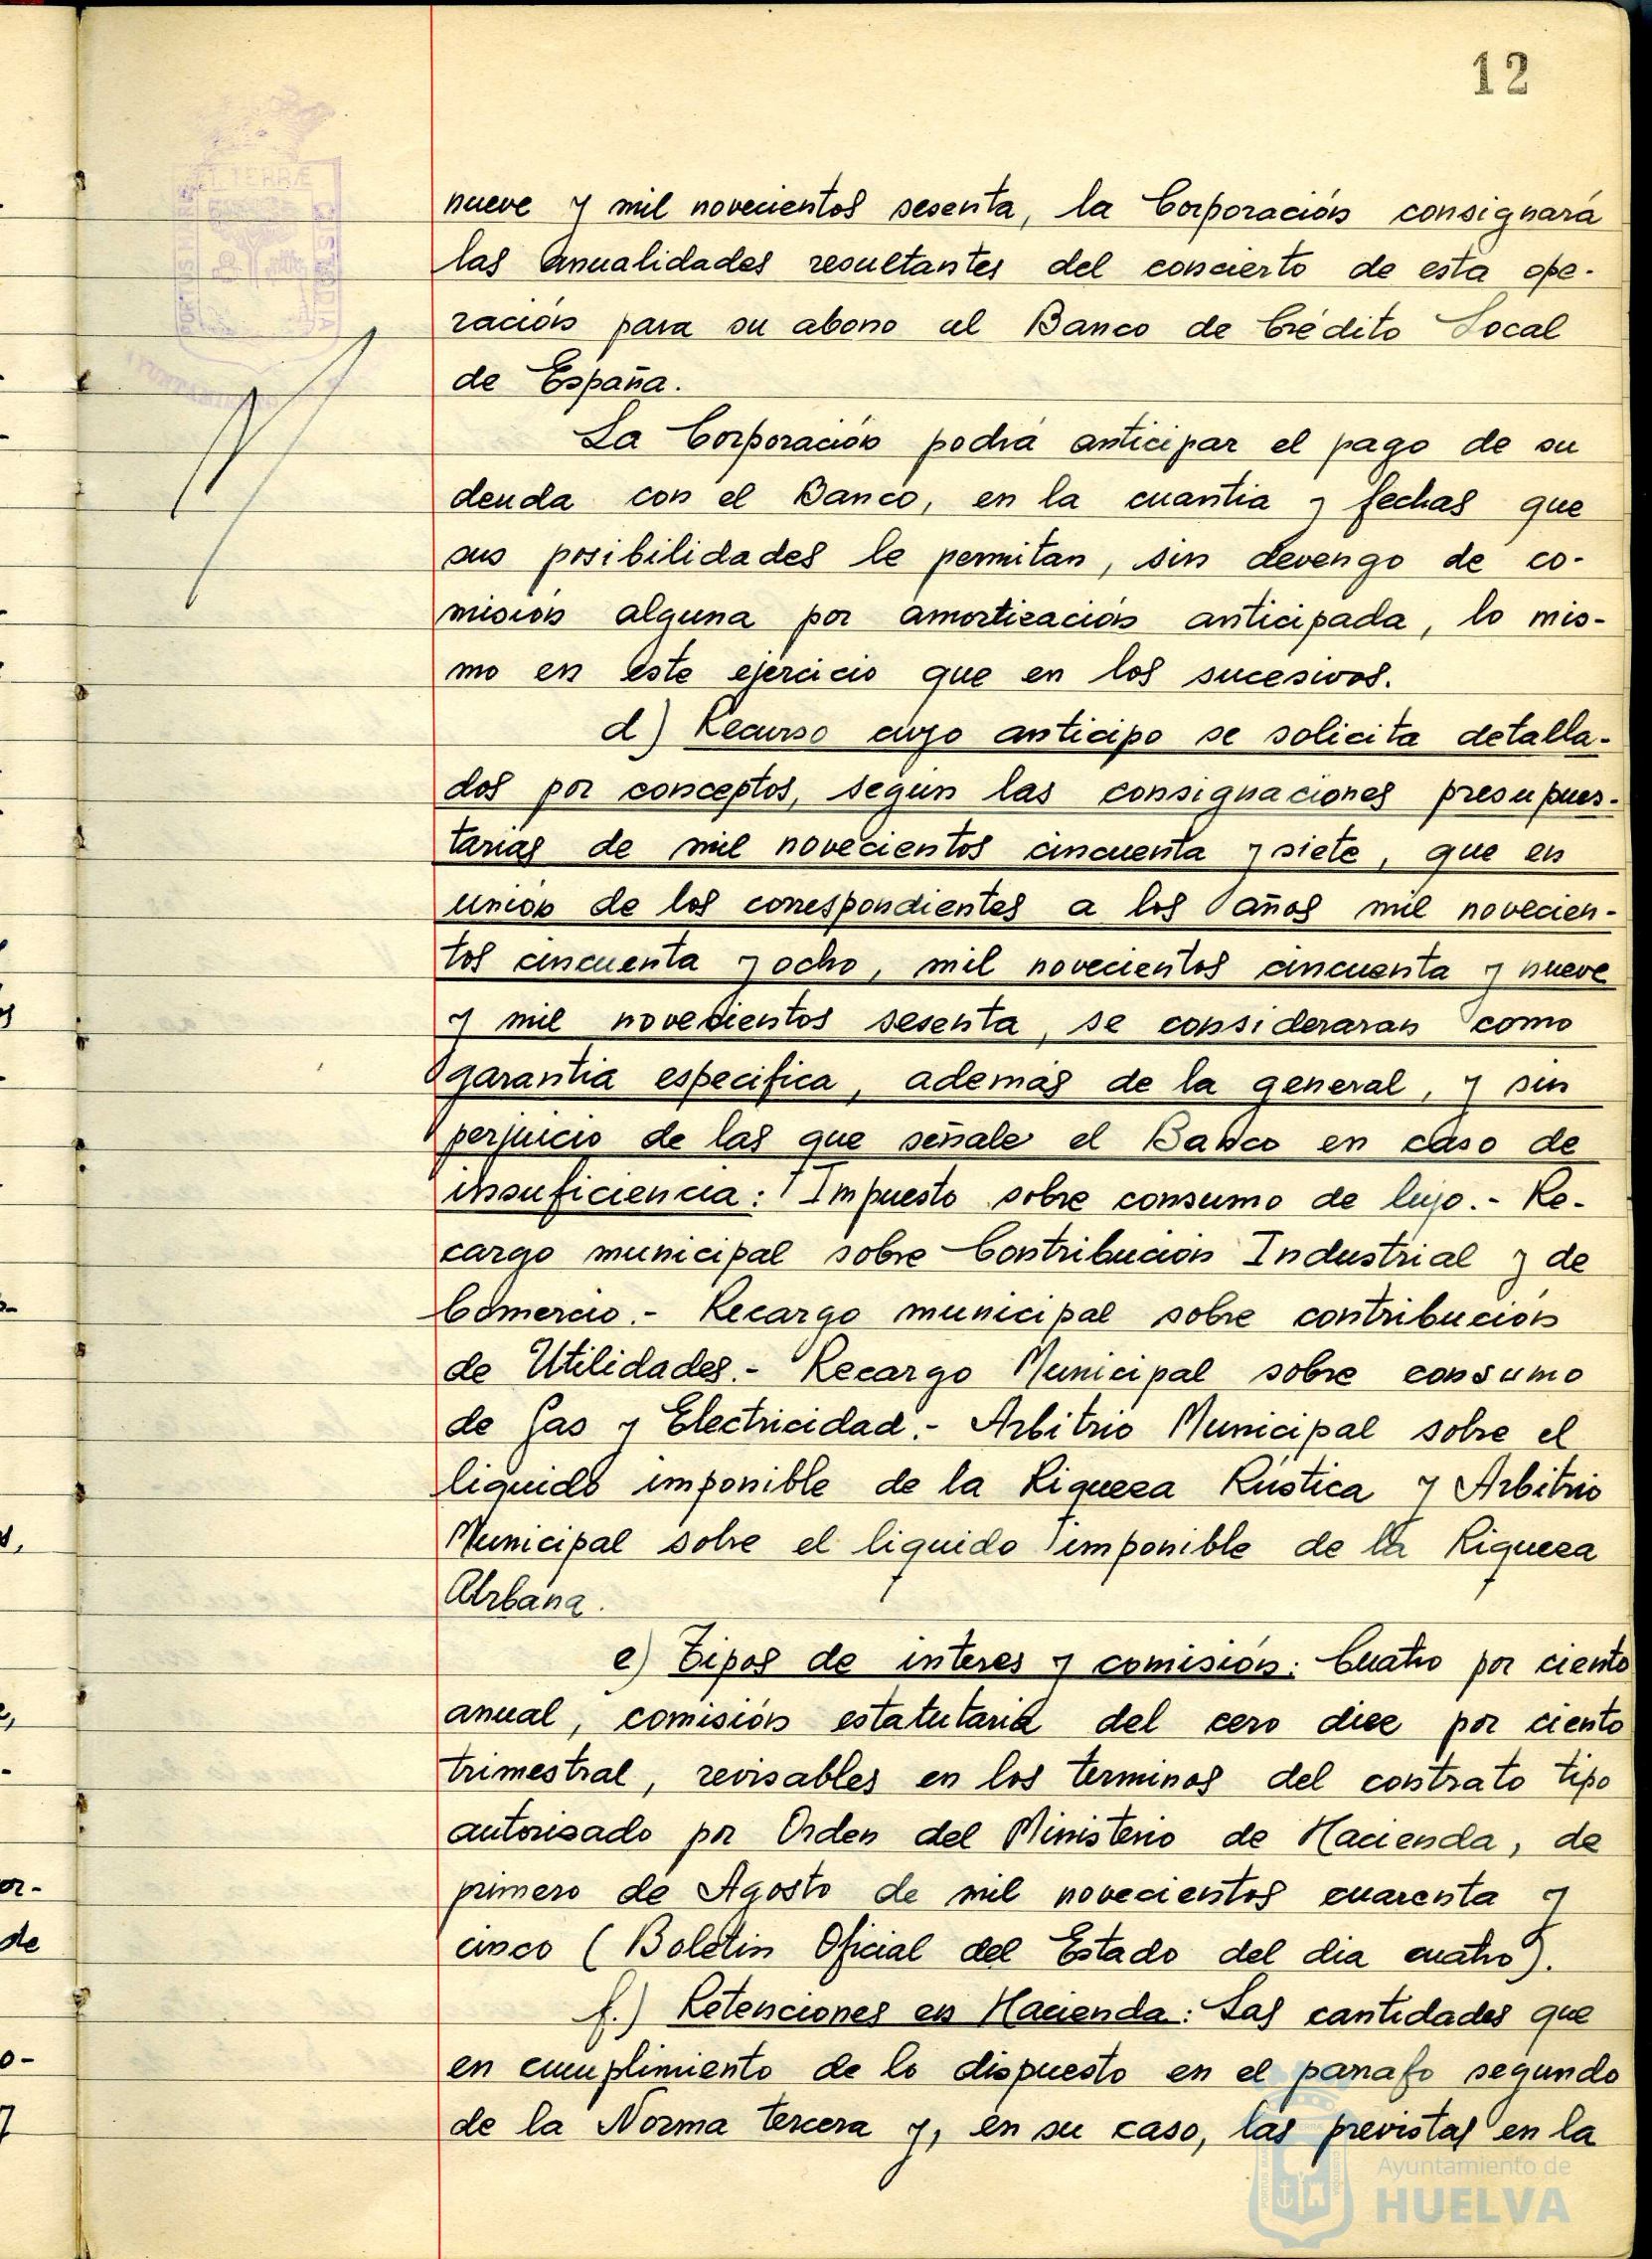 12
ET TERRÆ
PORTUS MARIS
CUSTODIA
AYUNTAMIENTO
nueve y mil novecientos sesenta, la Corporación consignará
las anualidades resultantes del concierto de esta ope-
ración para su abono al Banco de Crédito Local
de España.
La Corporación podrá anticipar el pago de su
deuda con el Banco, en la cuantia y fechas que
sus posibilidades le permitan, sin devengo de co-
misión alguna por amortización anticipada, lo mis-
mo en este ejercicio que en los sucesivos.
d) Recurso cuyo anticipo se solicita detalla-
dos por conceptos, según las consignaciones presupues-
tarias de mil novecientos cincuenta y siete, que en
unión de los correspondientes a los años mil novecien-
tos cincuenta y ocho, mil novecientos cincuenta y nueve
y mil novecientos sesenta, se consideraran como
garantia especifica, además de la general, y sin
perjuicio de las que señale el Banco en caso de
insuficiencia: Impuesto sobre consumo de lujo.- Re-
cargo municipal sobre Contribución Industrial y de
Comercio.- Recargo municipal sobre contribución
de Utilidades.- Recargo Municipal sobre consumo
de Gas y Electricidad.- Arbitrio Municipal sobre el
liquido imponible de la Riqueza Rústica y Arbitrio
Municipal sobre el liquido imponible de la Riqueza
Urbana.
e) Tipos de interes y comisión: Cuatro por ciento
anual, comisión estatutaria del cero diez por ciento
trimestral, revisables en los terminos del contrato tipo
autorizado por Orden del Ministerio de Hacienda, de
primero de Agosto de mil novecientos cuarenta y
cinco (Boletin Oficial del Estado del dia cuatro).
f.) Retenciones en Hacienda: Las cantidades que
en cumplimiento de lo dispuesto en el parrafo segundo
de la Norma tercera y, en su caso, las previstas en la
Ayuntamiento de
HUELVA